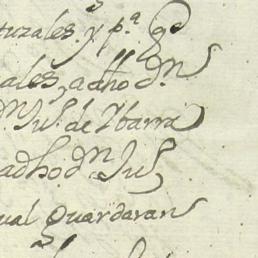 tuzales. y p.ª q̃e
ales, a dho Dn
Dn Jul. de Ybarra
adho. Dn Jul,
ual Guardaran